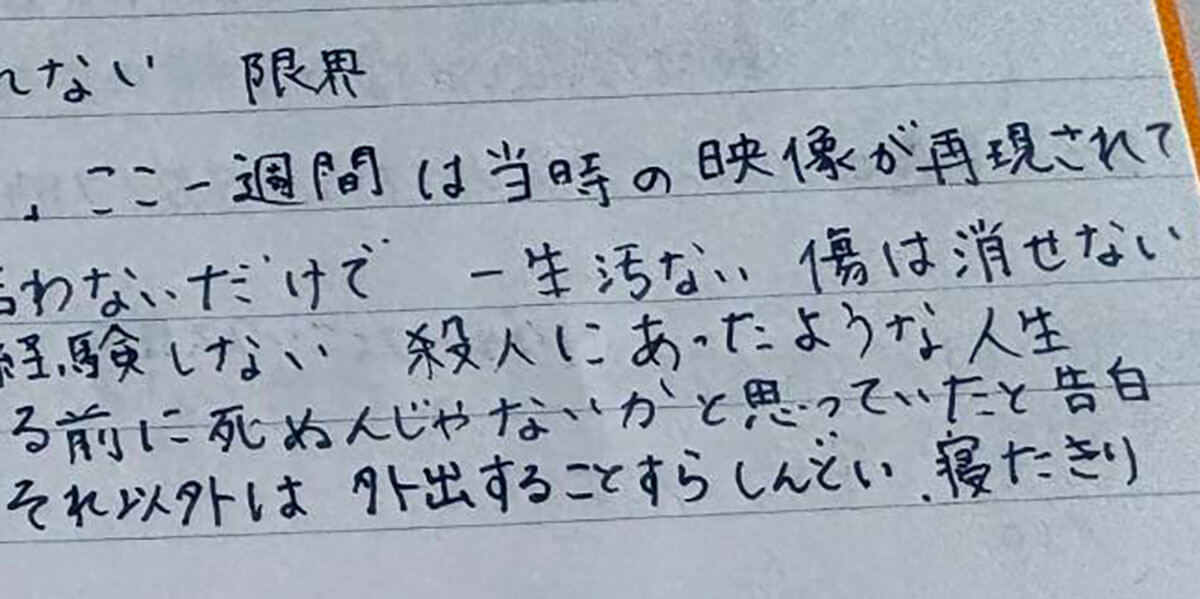 れない 限界
、ここ一週間は当時の映像が再現されて
言わないだけで 一生汚ない 傷は消せない
経験しない 殺人にあったような人生
る前に死ぬんじゃないかと思っていたと告白
それ以外は 外出することすらしんどい、寝たきり